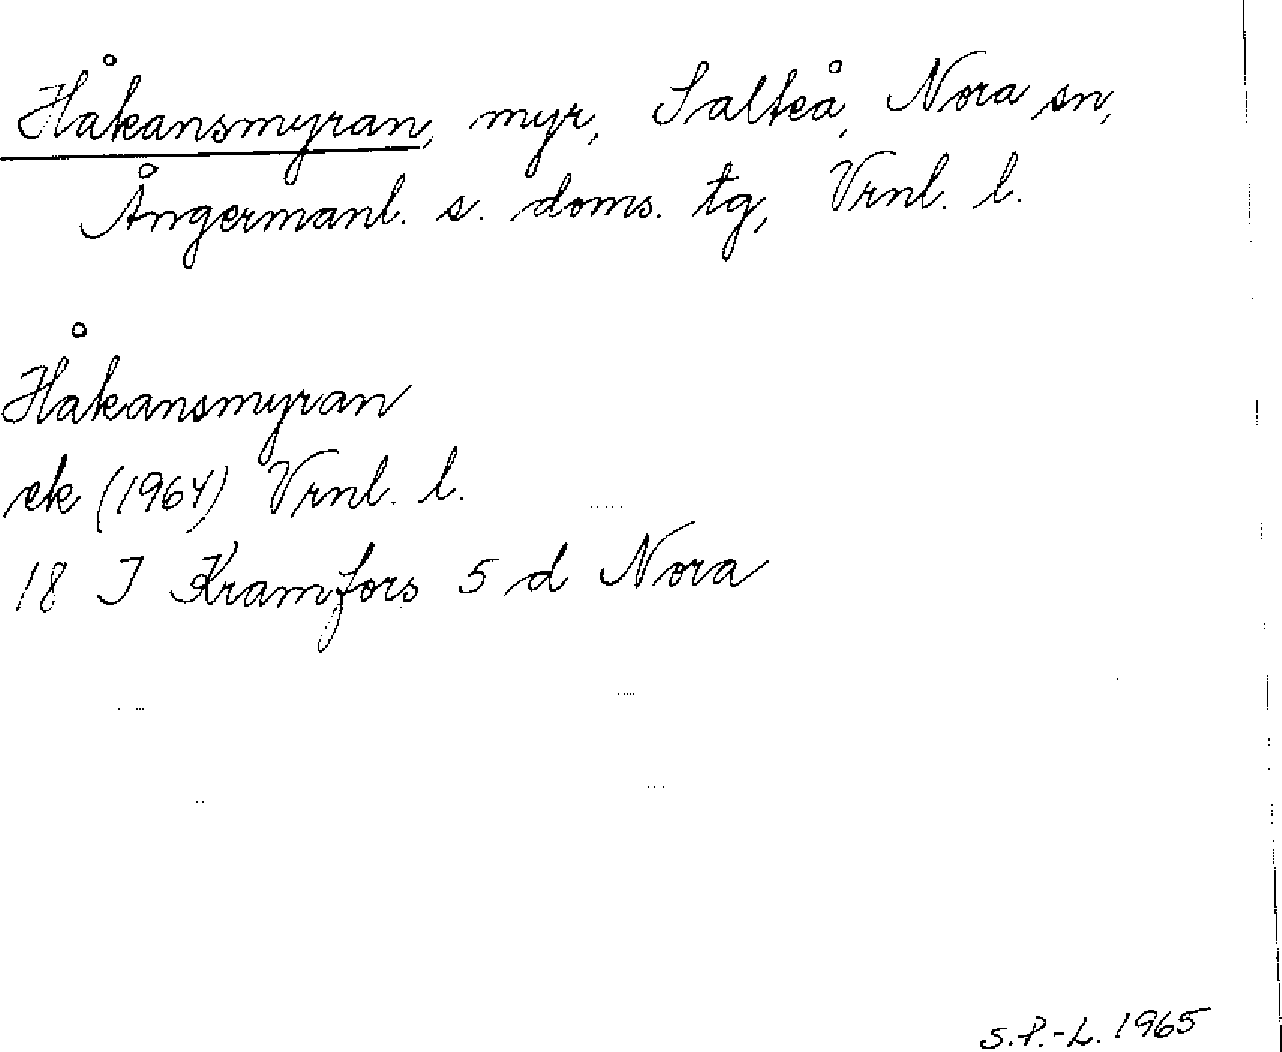 Håkansmyran, myr, Salteå, Nora sn,
Ångermanl. s. doms. tg, Vrnl. l.
Håkansmyran
ek (1964) Vrnl. l.
18 I Kramfors 5 d Nora
S.P.-L. 1965